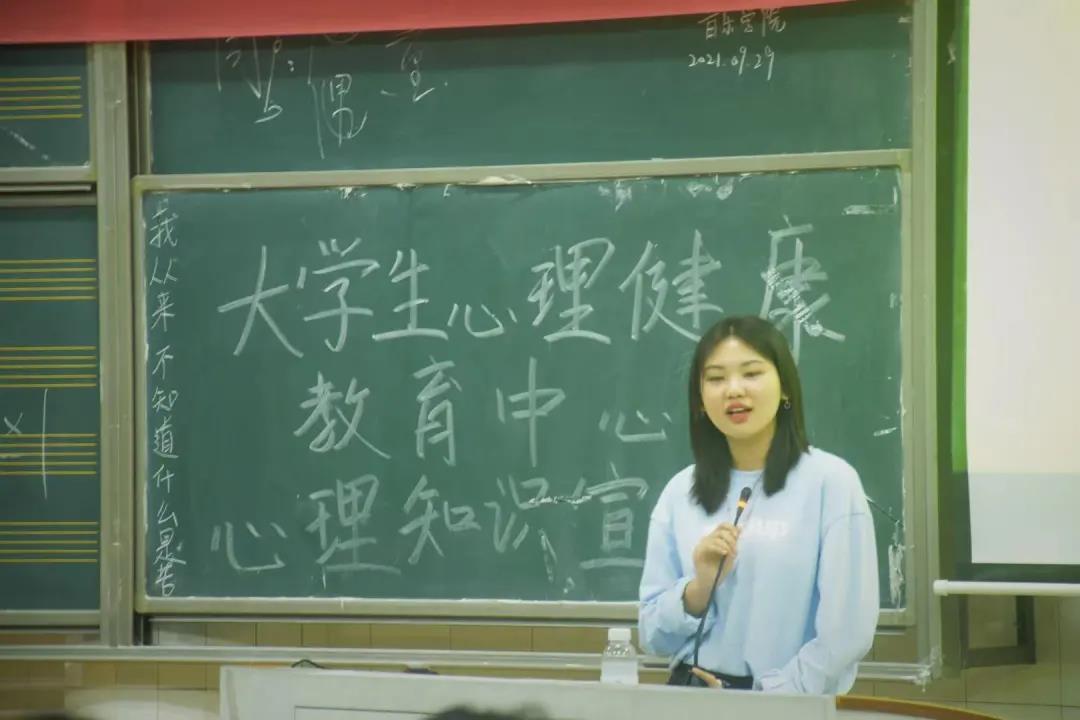 音乐学院
2021.09.29
我从来不知道什么是苦
大学生心理健康
教育中心
心理知识宣